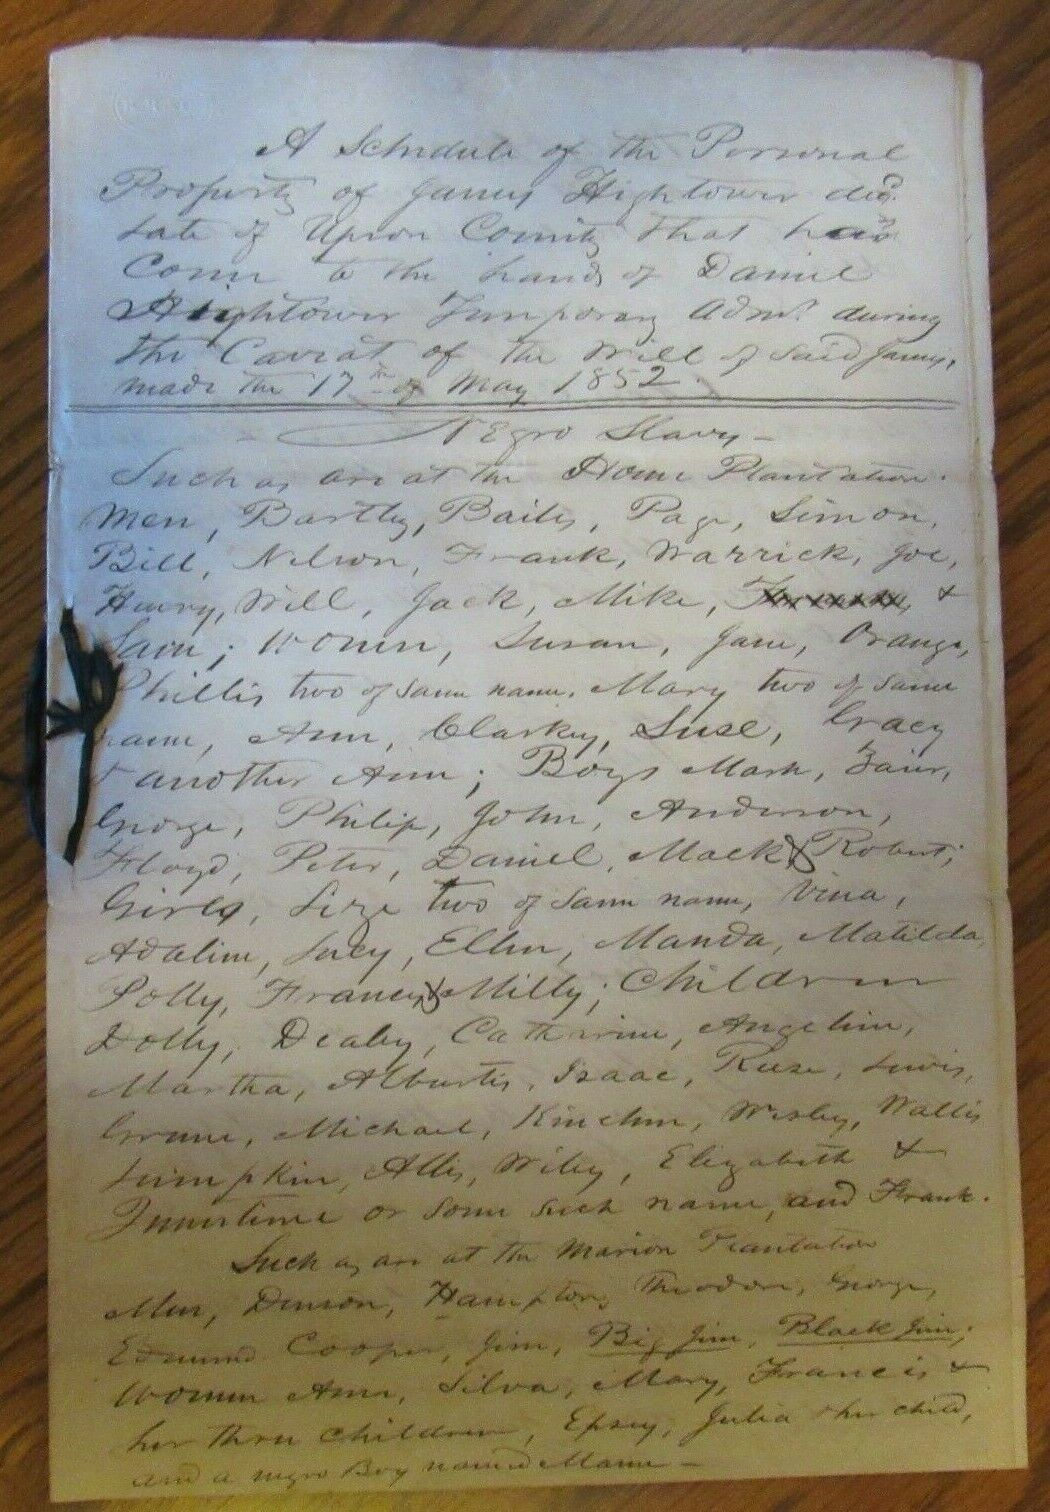 A Schedule of the Personal
Property of James Hightower decd.
Late of Upson County that has
Come to the hands of Daniel
Hightower Temporary Admr. during
the Caveat of the Will of said James,
made the 17th of May 1852.
Negro Slaves
Such as are at the Home Plantation.
Men, Bartley, Bailey, Page, Simon,
Bill, Nelson, Frank, Warrick, Joe,
Henry, Will, Jack, Mike, &
Women, Susan, Jane, Orange,
Phillis two of same name, Mary two of same
name, Ann, Clarky, Suse, Gracy
& another Ann; Boys Mark,
George, Philip, John, Anderson,
Floyd, Peter, Daniel, Mack & Robert;
Girls, Size two of same name, Vina,
Adaline, Lucy, Ellen, Manda, Matilda,
Polly, Frances & Milly; Children
Dolly, Dealey, Catherine, Angeline,
Martha, Albertis, Isaac, Reese, Lewis,
Green, Michael, Kinchen, Wesley, Wallis
Lumpkin, Wiley, Elizabeth &
or some such name, and Frank.
Such as are at the Marion Plantation
Men, Denson, Hampton, Theodore, George,
Edmund Cooper, Jim, Big Jim, Black Jim;
Women Ann, Silva, Mary, Francis &
her three children, Epsey, Julia & her child,
and a negro Boy named